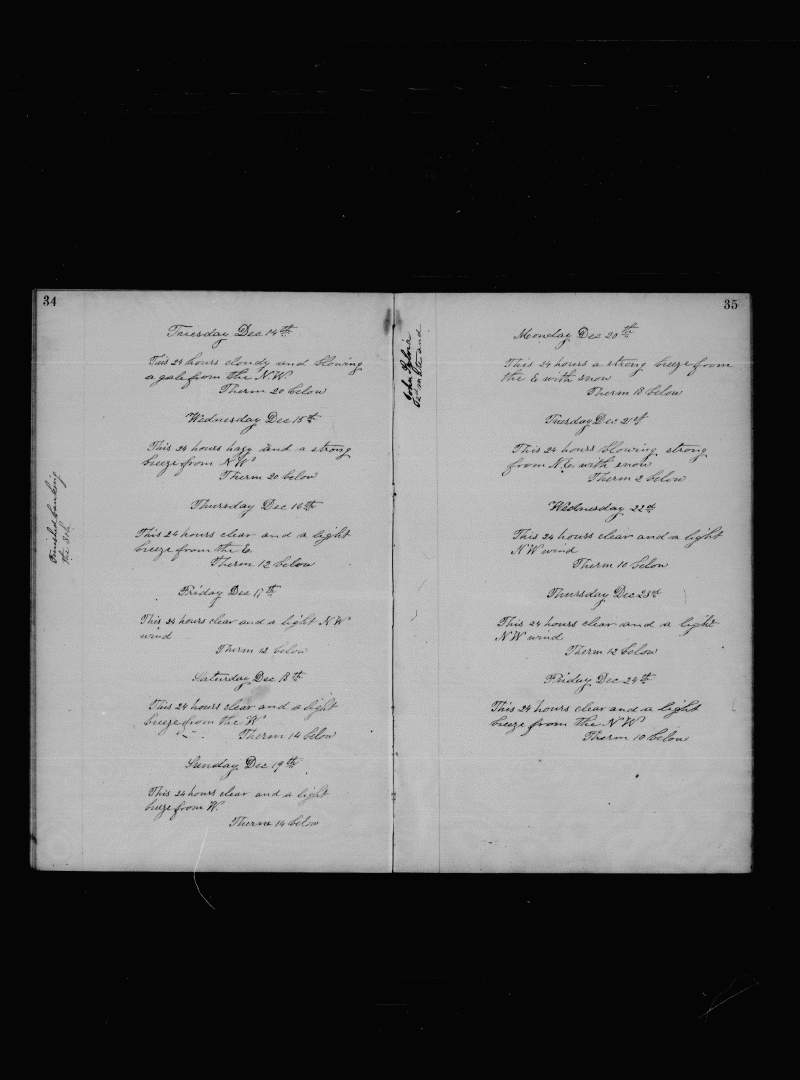 34
Tuesday Dec 14th
This 24 hours cloudy and blowing
a gale from the N.W.
Therm 20 below
Wednesday Dec 15th
This 24 hours hazy and a strong
breeze from N.W.
Therm 20 below
Thursday Dec 16th
This 24 hours clear and a light
breeze from the E.
Therm 12 below
Friday Dec 17th
This 24 hours clear and a light N W
wind
Therm 12 below
Saturday Dec 18th
This 24 hours clear and a light
breeze from the W
Therm 14 below
Sunday Dec 19th
This 24 hours clear and a light
breeze from W.
Therm 14 below
Finished banking
the
35
John
and
Monday Dec 20th
This 24 hours a strong breeze from
the E with snow
Therm 18 below
Tuesday Dec 21st
This 24 hours blowing strong
from N.E. with snow
Therm 2 below
Wednesday 22nd
This 24 hours clear and a light
N W wind
Therm 10 below
Thursday Dec 23rd
This 24 hours clear and a light
N W wind
Therm 12 below
Friday Dec 24th
This 24 hours clear and a light
breeze from the N.W.
Therm 10 below